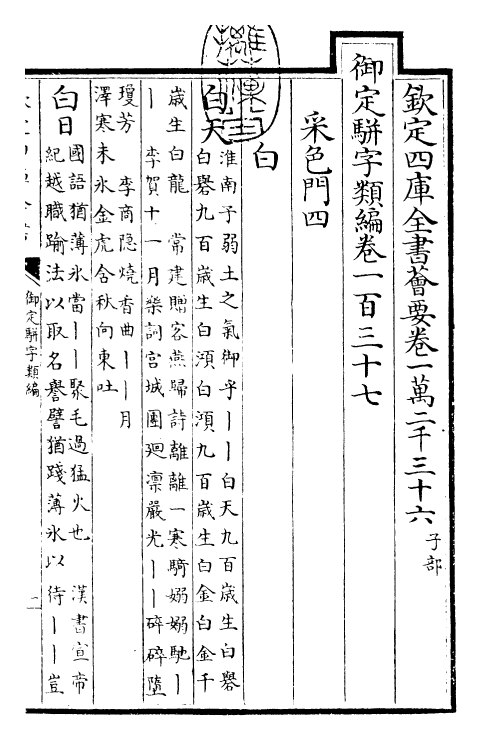 欽定四庫全書薈要卷一萬二千三十六 子部
御定駢字類編卷一百三十七
采色門四
白
白天 淮南子弱土之氣御乎丨丨白天九百歲生白礜
白礜九百歲生白澒白澒九百歲生白金白金千
歲生白龍 常建贈客燕歸詩離離一寒騎嫋嫋馳丨
丨 李賀十一月樂詞宮城團廻凛嚴光丨丨碎碎墮
瓊芳 李商隐燒香曲丨丨月
澤寒未氷金虎含秋向東吐
白日 國語猶薄氷當丨丨聚毛過猛火也 漢書宣帝
紀越職踰法以取名譽譬猶踐薄氷以待丨丨豈
御定駢字類編